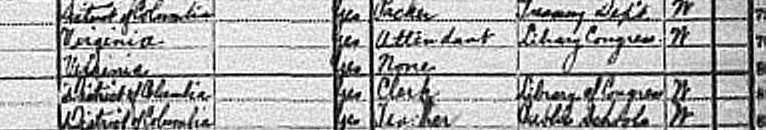 District of Columbia yes Packer Treasury Dep't W
Virginia yes Attendant Library Congress W
Virginia yes None
District of Columbia yes Clerk Library of Congress W
District of Columbia yes Teacher Public Schools W